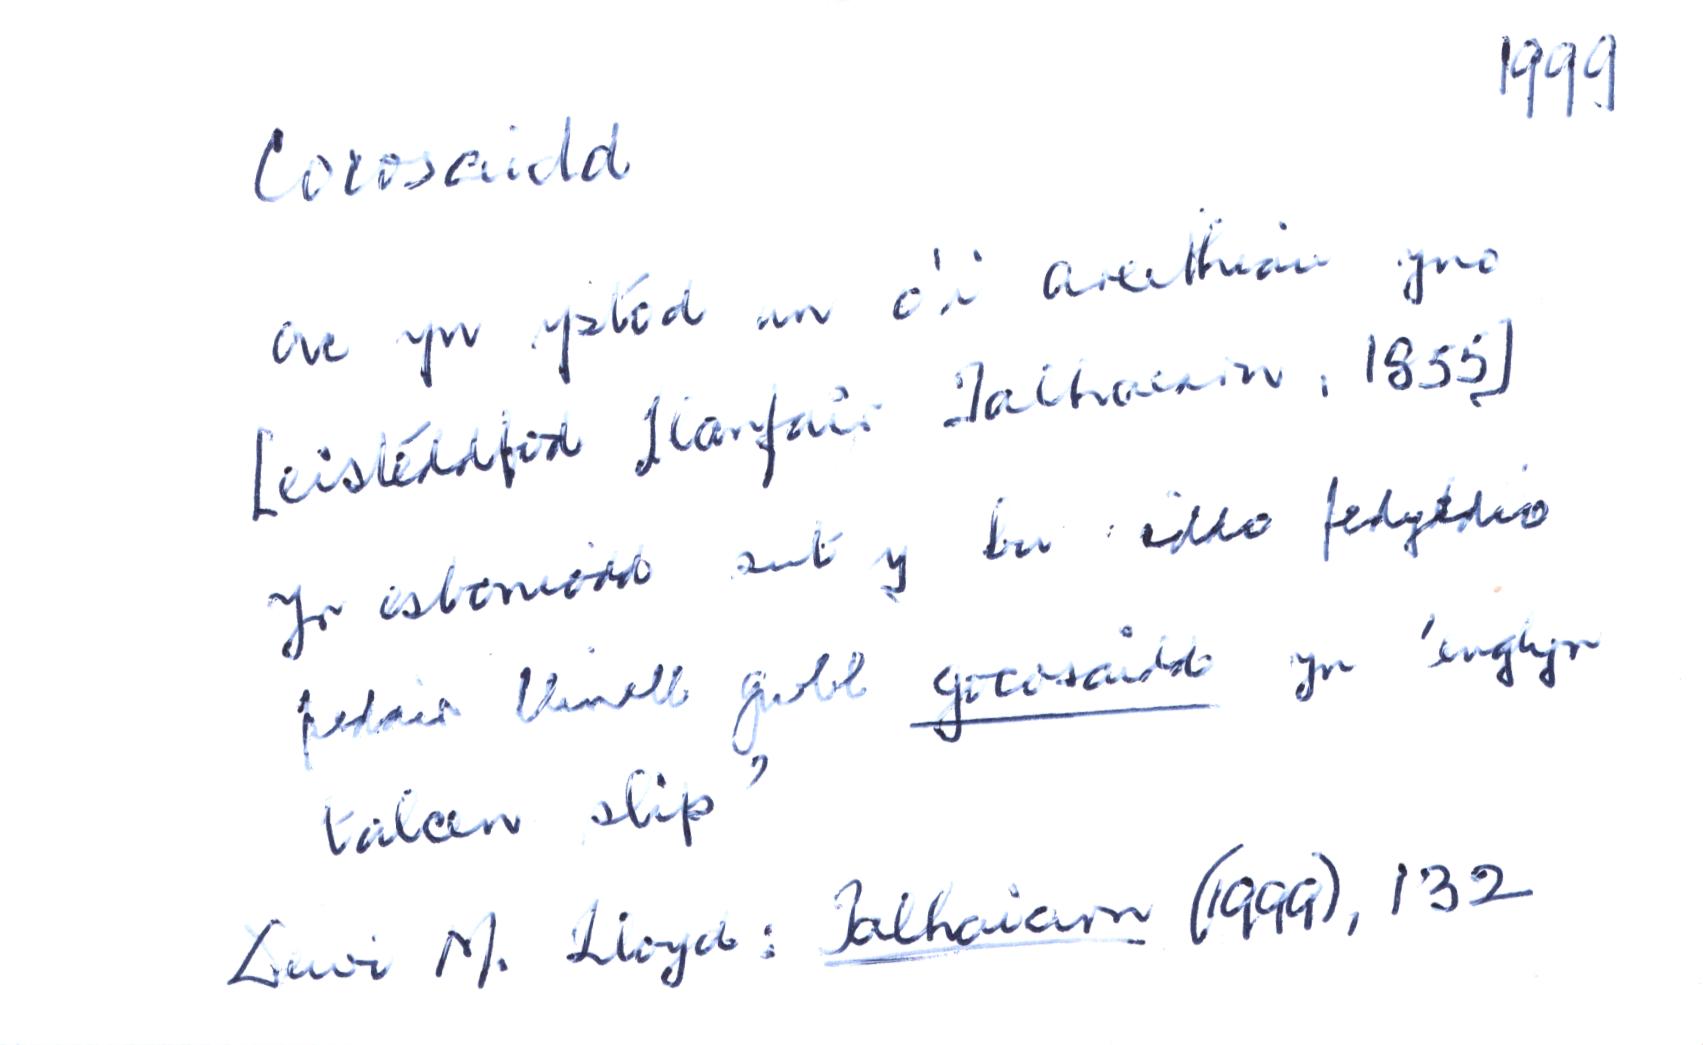 1999
Cocosaidd
ac yn ystod un o'i areithiau yno
[eisteddfod Llanfair Talhaearn, 1855]
yr esboniodd sut y bu iddo fedyddio
pedair llinell gwbl gocosaidd yn 'englyn
talcen slip'
Dewi M. Lloyd: Talhaiarn (1999), 132